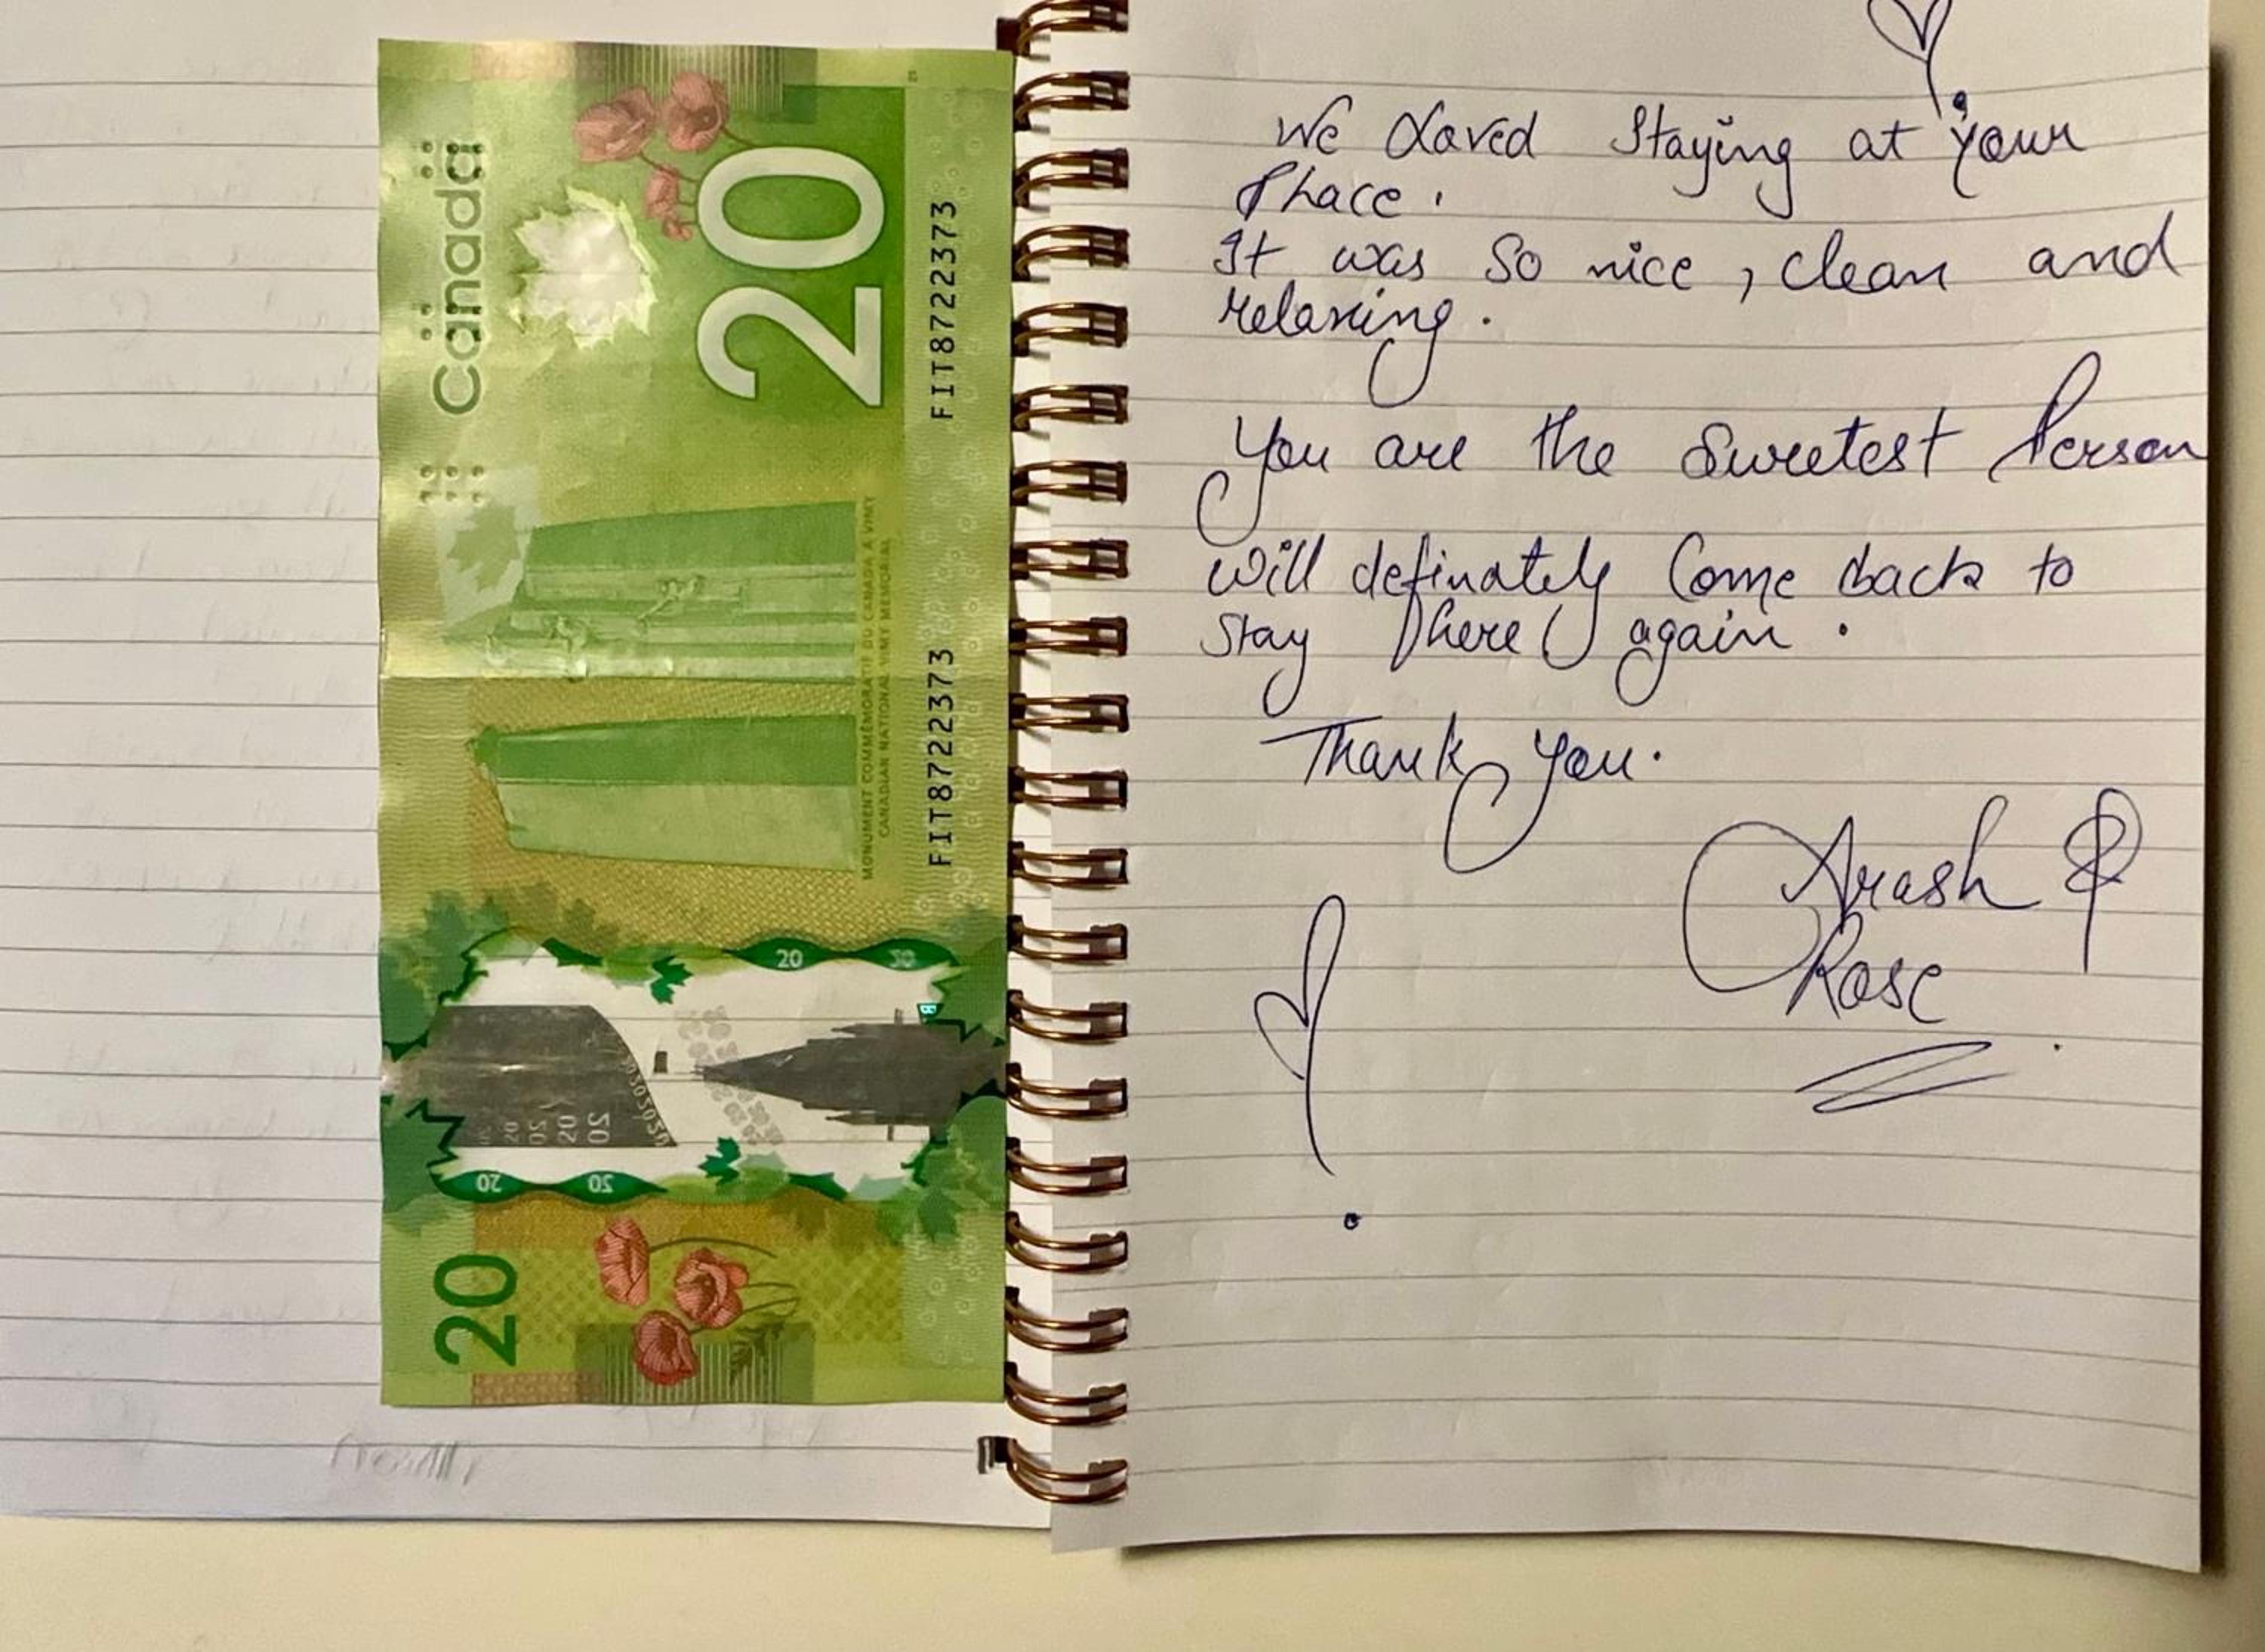 Canada
20
FIT8722373
FIT8722373
MONUMENT COMMÉMORATIF DU CANADA À VIMY
CANADIAN NATIONAL VIMY MEMORIAL
20
20
20
20
20
We Loved Staying at your
Place.
It was So nice, clean and
relaxing.
You are the Sweetest Person
will definately Come back to
stay here again.
Thank you.
Arash &
Rose